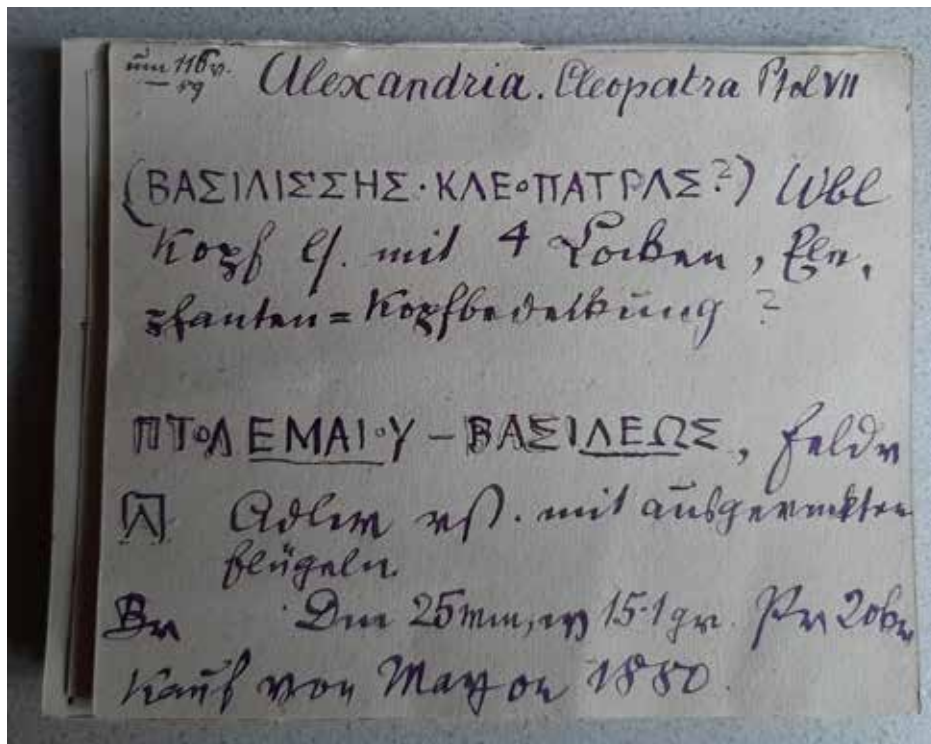 um 116 v.
Alexandria. Cleopatra Ptol VII
(ΒΑΣΙΛΙΣΣΗΣ·ΚΛΕοΠΑΤΡΑΣ?) Wbl
Kopf l. mit 4 Locken, Ele,
phanten=Kopfbedeckung ?
ΠΤοΛΕΜΑΙοΥ – ΒΑΣΙΛΕΩΣ, Feldr
Adler mit ausgereckten
Flügeln.
Br 25 mm, 15·1 gr.
Kauf von 1880.